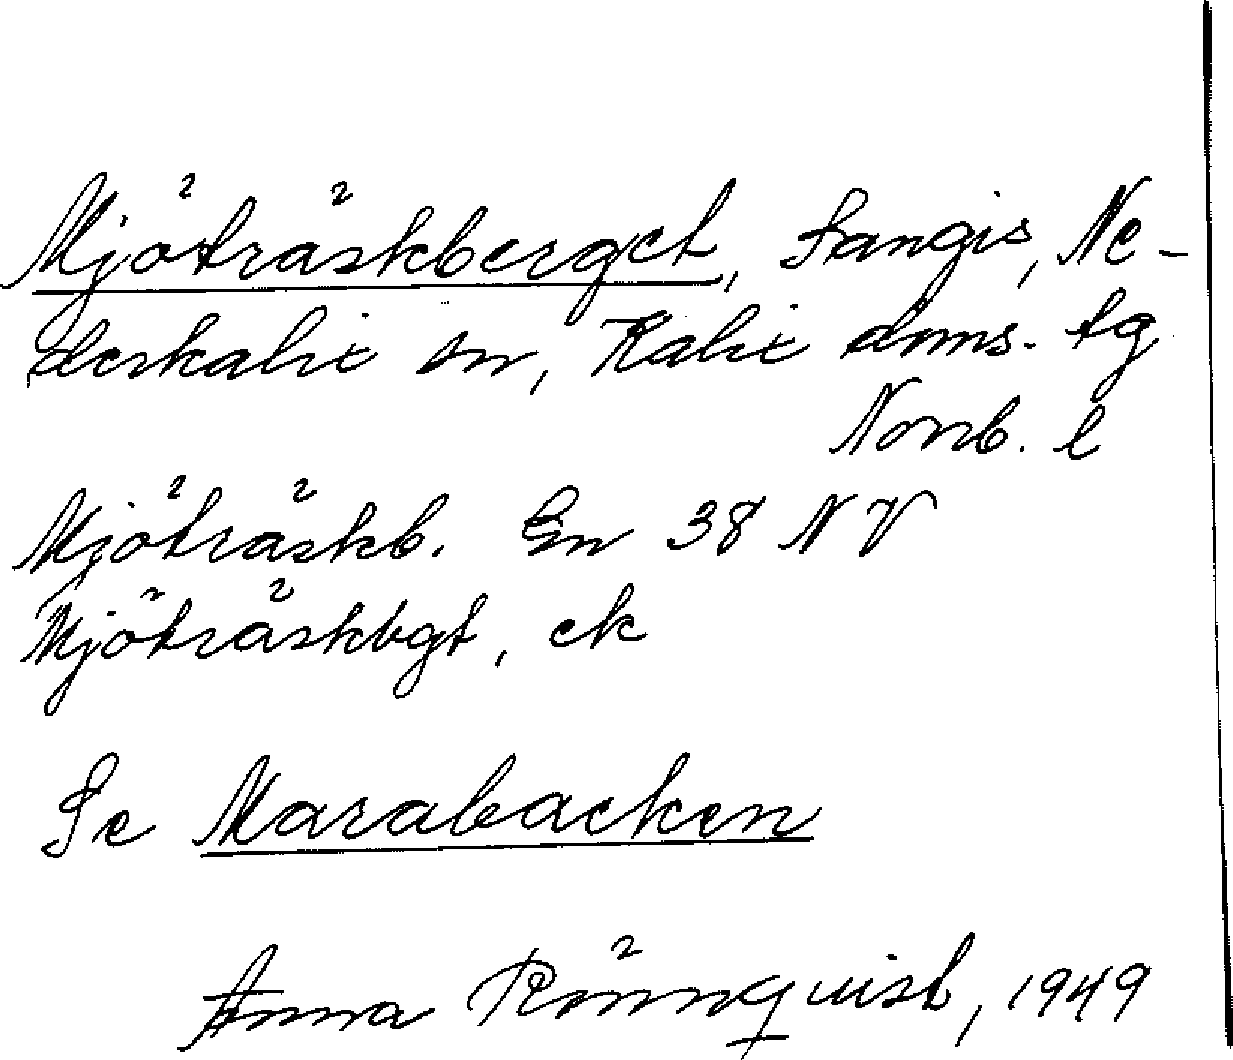 Mjöträskberget, Sangis, Ne-
derkalix sn, Kalix doms. tg
Norrb. l
Mjöträskb. Gn 38 NV
Mjöträskbgt, ek
Se Marabacken
Anna Rönnquist, 1949